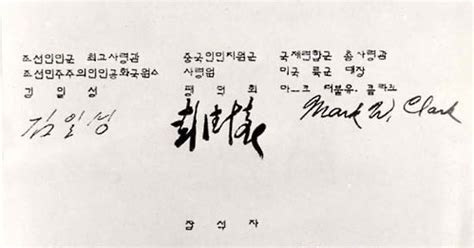 조선인민군 최고사령관 중국인민지원군 국제련합군 총사령관
조선민주주의인민공화국원수 사령원 미국 륙군 대장
김일성 팽덕회 마-크 더블유. 클라크
김일성 彭德懷 Mark W. Clark
참석자